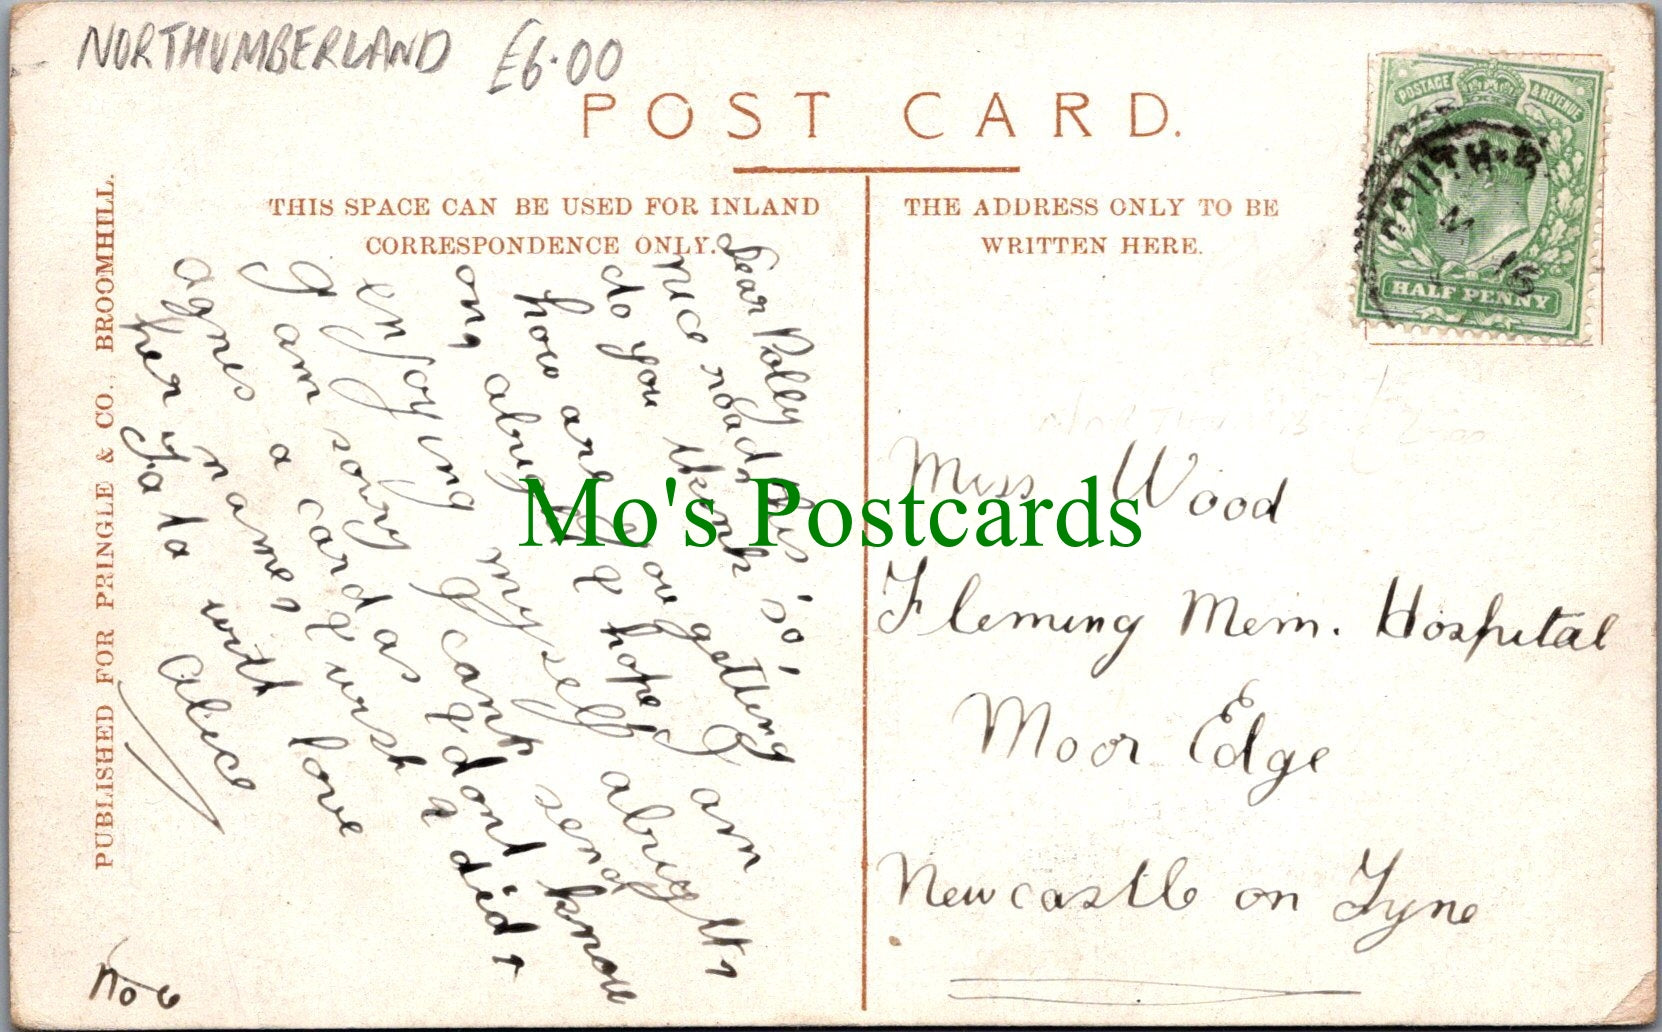 NORTHUMBERLAND £6.00
POST CARD.
THIS SPACE CAN BE USED FOR INLAND
CORRESPONDENCE ONLY.
THE ADDRESS ONLY TO BE
WRITTEN HERE.
POSTAGE & REVENUE
HALF PENNY
PUBLISHED FOR PRINGLE & CO., BROOMHILL.
Dear Polly this
nice road
do you think so,
how are you getting
on, alright I hope I am
enjoying myself alright
I am sorry I cant send
agnes a card as I dont know
her name, I wish I did
Ta ta with love
Alice
No 6
Miss Wood
Fleming Mem. Hospital
Moor Edge
Newcastle on Tyne
Mo's Postcards